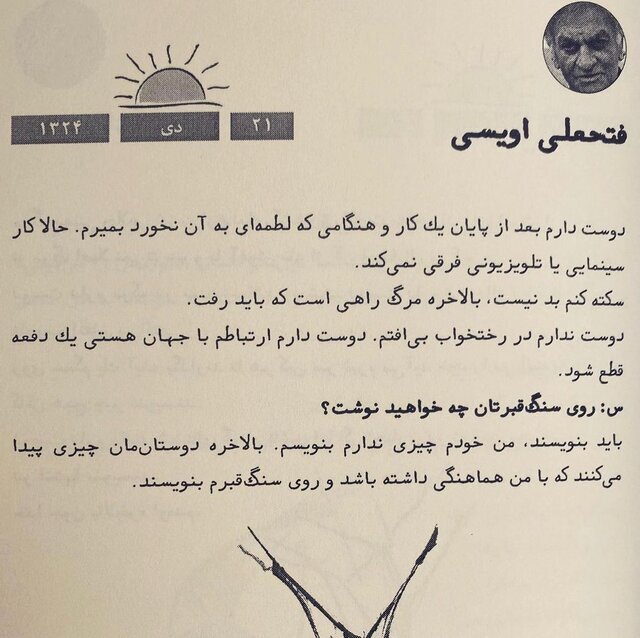 ۲۱ دی ۱۳۲۴
فتحعلی اویسی
دوست دارم بعد از پایان یك کار و هنگامی که لطمه‌ای به آن نخورد بمیرم. حالا کار
سینمایی یا تلویزیونی فرقی نمی‌کند.
سکته کنم بد نیست، بالاخره مرگ راهی است که باید رفت.
دوست ندارم در رختخواب بی‌افتم. دوست دارم ارتباطم با جهان هستی یك دفعه
قطع شود.
س: روی سنگ‌قبرتان چه خواهید نوشت؟
باید بنویسند، من خودم چیزی ندارم بنویسم. بالاخره دوستان‌مان چیزی پیدا
می‌کنند که با من هماهنگی داشته باشد و روی سنگ‌قبرم بنویسند.